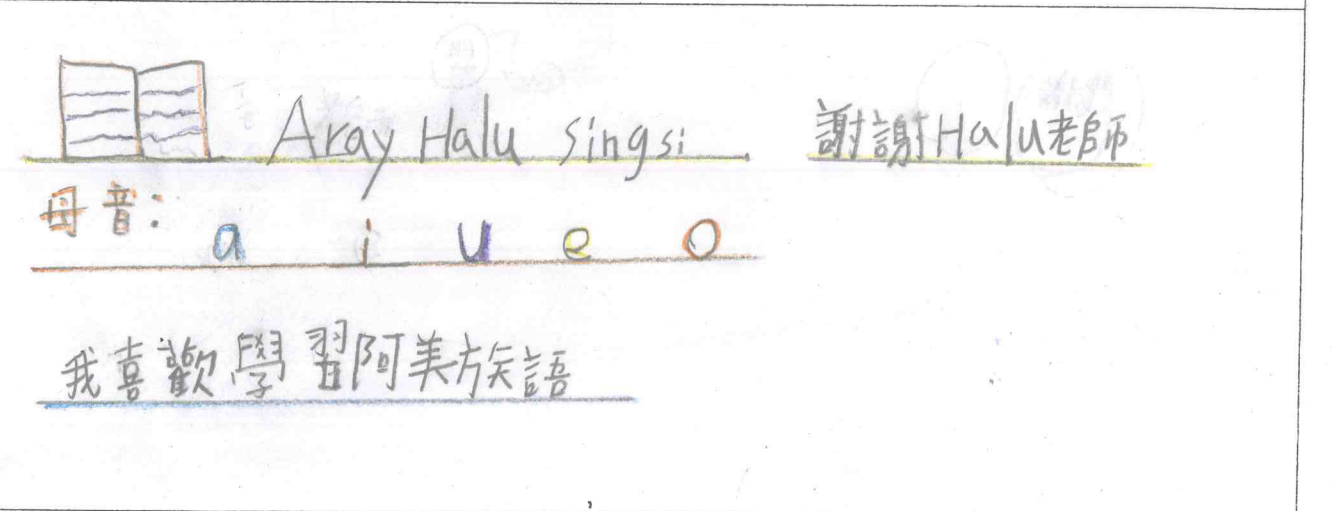 Aray Halu singsi 謝謝Halu老師
母音: a i u e o
我喜歡學習阿美族語